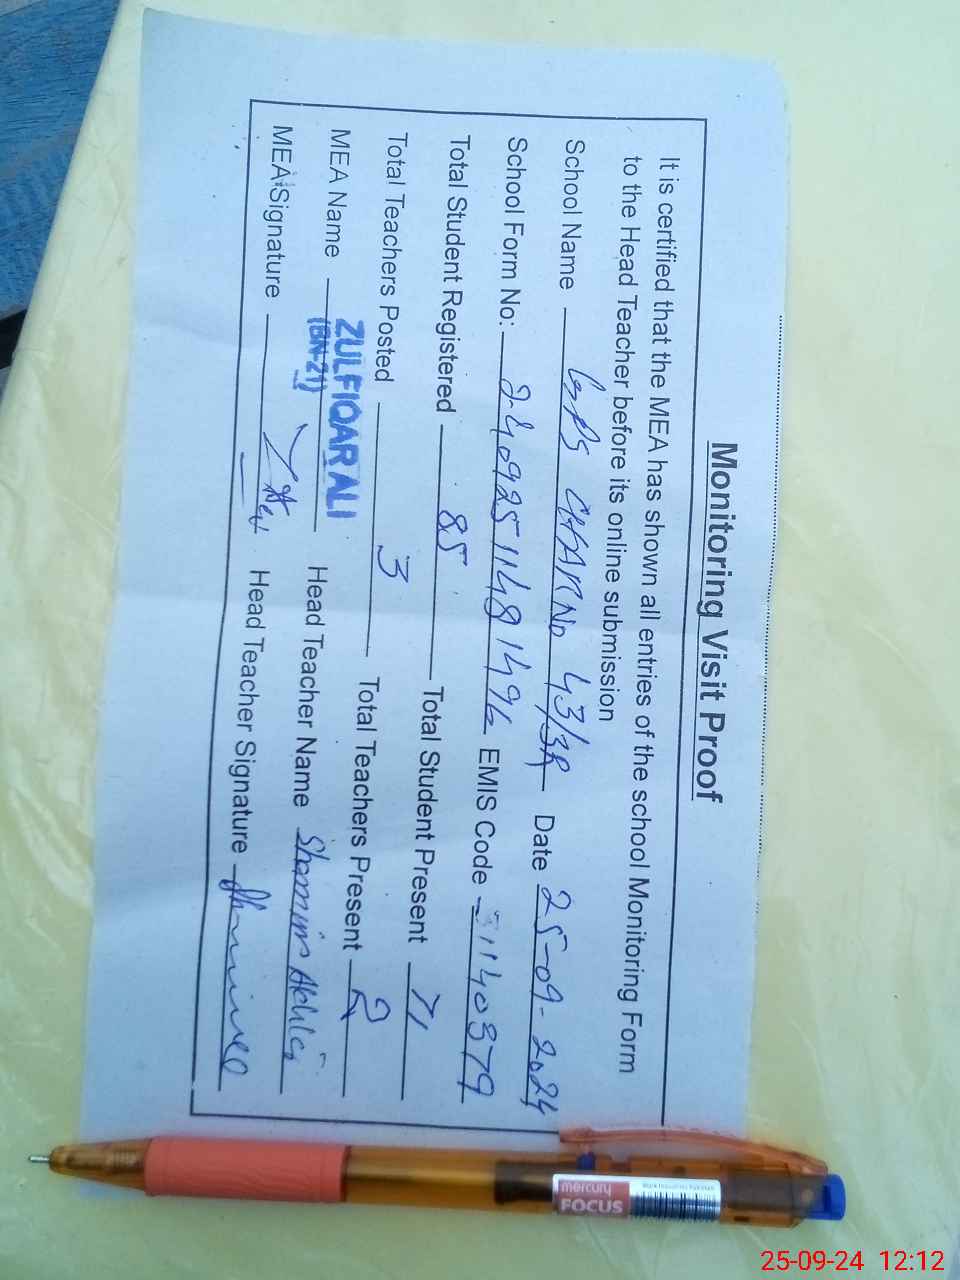 Monitoring Visit Proof
It is certified that the MEA has shown all entries of the school Monitoring Form
to the Head Teacher before its online submission
School Name GPS CHAK No 43/3R Date 25-09-2024
School Form No: 24092511481496 EMIS Code 31140379
Total Student Registered 85 Total Student Present 71
Total Teachers Posted 3 Total Teachers Present 2
MEA Name ZULFIQAR ALI Head Teacher Name Shamim Akhtar
(BN-21)
MEA Signature Head Teacher Signature
mercury
FOCUS
25-09-24 12:12